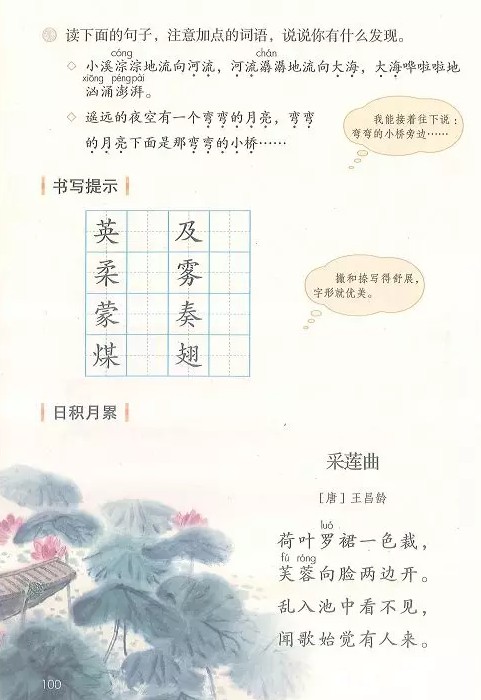 读下面的句子，注意加点的词语，说说你有什么发现。
cóng chán
小溪淙淙地流向河流，河流潺潺地流向大海，大海哗啦啦地
xiōng péngpài
汹涌澎湃。
遥远的夜空有一个弯弯的月亮，弯弯
的月亮下面是那弯弯的小桥……
我能接着往下说：
弯弯的小桥旁边……
书写提示
英 及
柔 雾
蒙 奏
煤 翅
撇和捺写得舒展，
字形就优美。
日积月累
采莲曲
［唐］王昌龄
luó
荷叶罗裙一色裁，
fú róng
芙蓉向脸两边开。
乱入池中看不见，
闻歌始觉有人来。
100